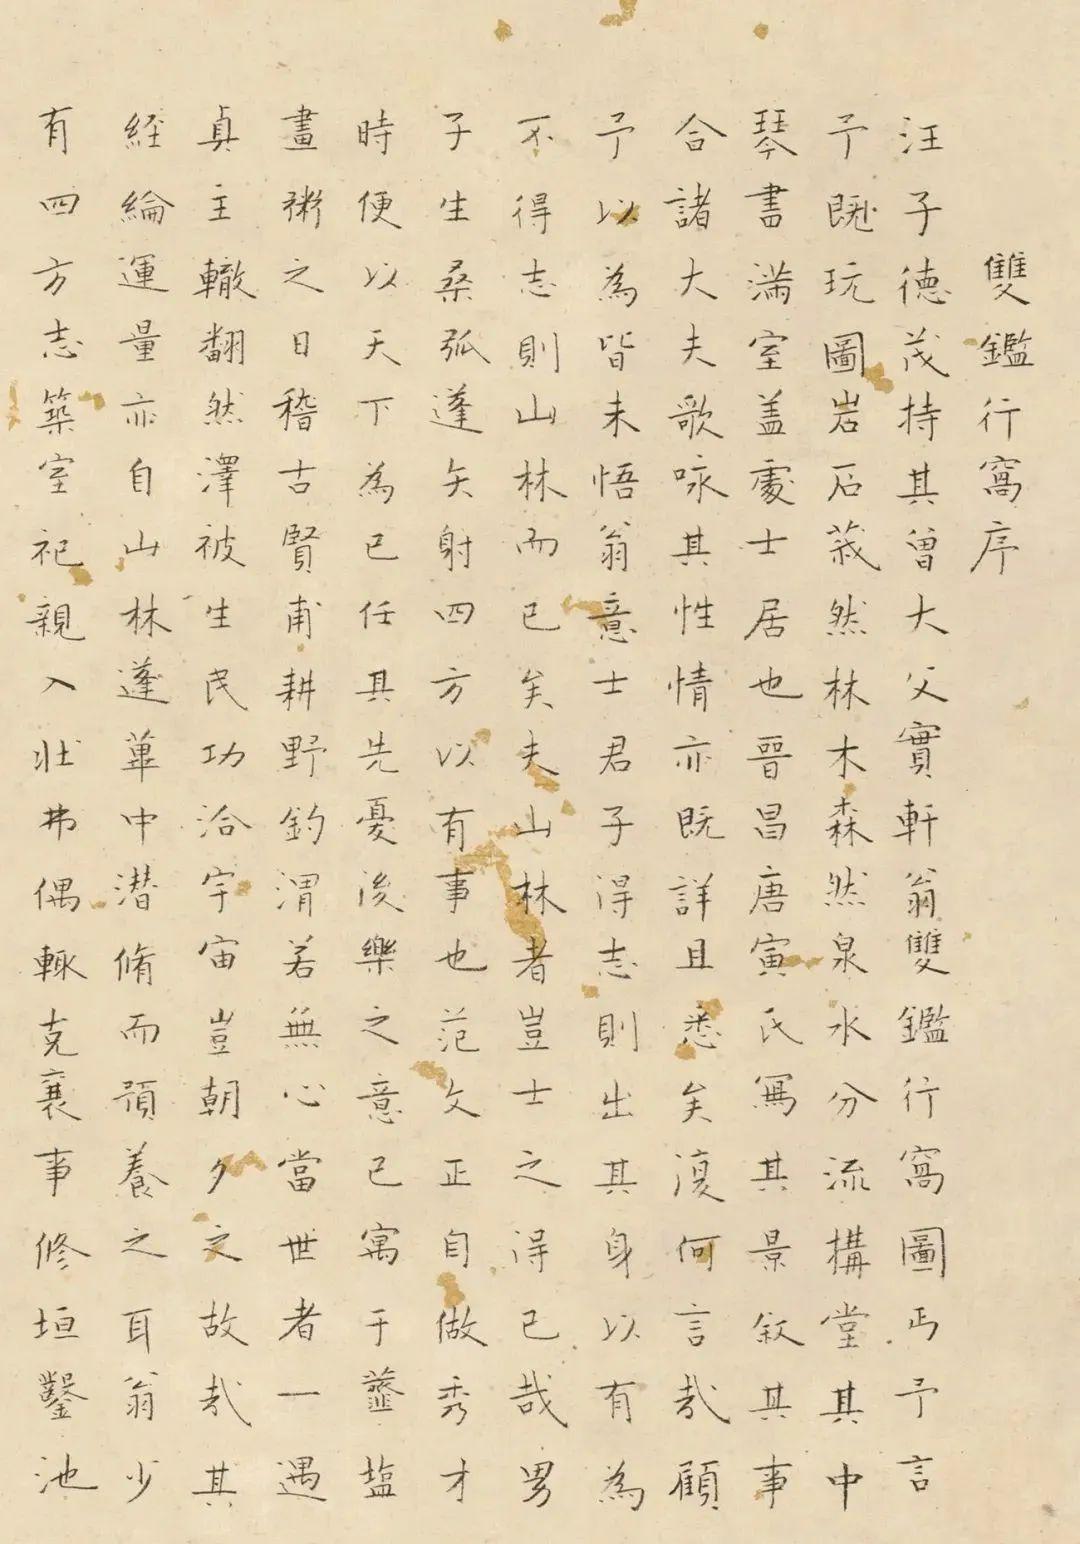 雙鑑行窩序
汪子德茂持其曾大父實軒翁雙鑑行窩圖丐予言
予既玩圖岩石莪然林木森然泉水分流構堂其中
琴書滿室盖處士居也晉昌唐寅氏寫其景叙其事
合諸大夫歌咏其性情亦既詳且悉矣復何言哉顧
予以為皆未悟翁意士君子得志則出其身以有為
不得志則山林而已矣夫山林者豈士之得已哉男
子生桑弧蓬矢射四方以有事也范文正自做秀才
時便以天下為已任其先憂後樂之意已寓于虀塩
畫粥之日稽古賢甫耕野釣渭若無心當世者一遇
真主轍翻然澤被生民功洽宇宙豈朝夕之故哉其
經綸運量亦自山林蓬蓽中潜脩而預養之耳翁少
有四方志築室祀親入壯弗偶輙克襄事修垣鑿池